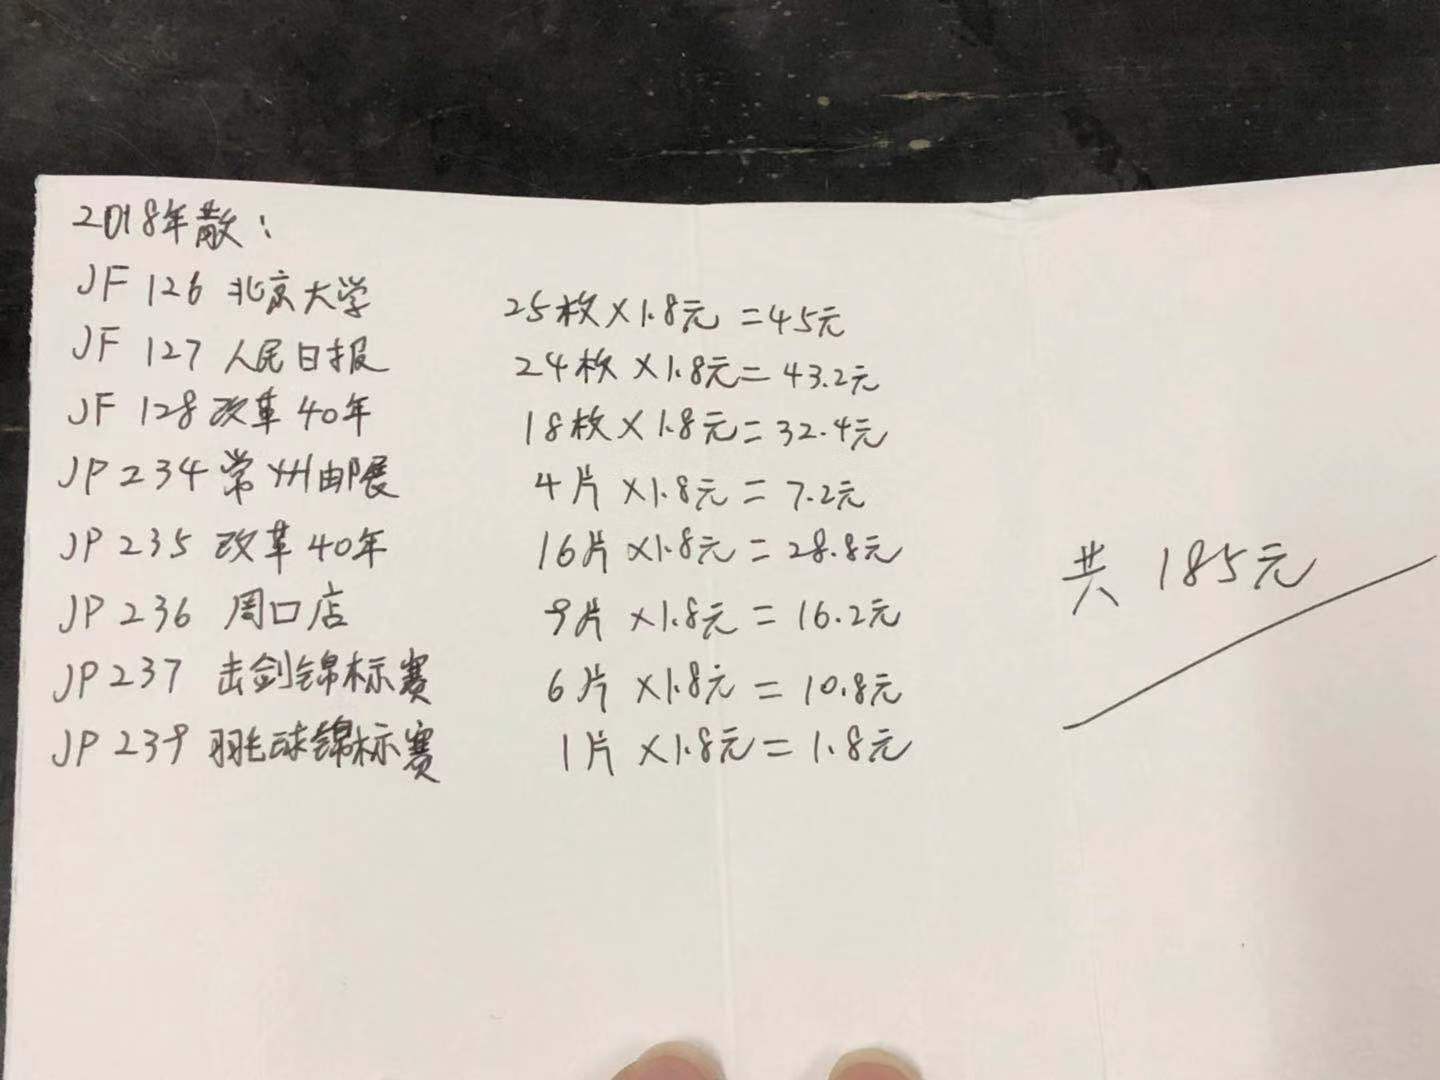 2018年散：
JF 126 北京大学 25枚×1.8元=45元
JF 127 人民日报 24枚×1.8元=43.2元
JF 128 改革40年 18枚×1.8元=32.4元
JP 234 常州邮展 4片×1.8元=7.2元
JP 235 改革40年 16片×1.8元=28.8元
JP 236 周口店 9片×1.8元=16.2元
JP 237 击剑锦标赛 6片×1.8元=10.8元
JP 239 羽毛球锦标赛 1片×1.8元=1.8元
共 185元